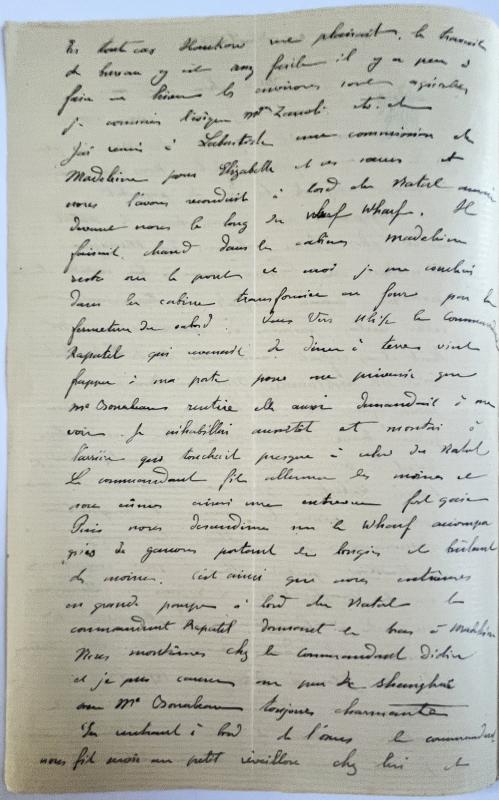 En tout cas Hankow me plaisait, le travail
de bureau y est assez facile il y a peu à
faire les environs sont agréables
je connais l'évêque Mgr Zanoli etc. et
J'ai remis à Labastide une commission de
Madeleine pour Elizabeth et ses sœurs et
nous l'avons reconduit à bord du Natal
devant nous le long du Wharf. Il
faisait chaud dans les cabines Madeleine
resta sur le pont et moi je me couchai
dans la cabine transformée en four par la
fermeture du sabord. Vers le Comman
Rapatel qui revenait de dîner à terre vint
frapper à ma porte pour me prévenir que
Me rentire elle aussi demandait à me
voir. Je m'habillai aussitôt et montai à
l'arrière qui touchait presque à celui du Natal
Le commandant fit allumer les moines et
nous eûmes ainsi une entrevue fort gaie
Puis nous descendîmes sur le Wharf accompa
gnés de garçons portant des bougies et brûlant
des moines. C'est ainsi que nous entrâmes
en grande pompe à bord du Natal le
commandant Rapatel donnant le bras à Madeleine
Nous montâmes chez le commandant Didier
et je pus causer un peu de Shanghai
avec Me toujours charmante
En rentrant à bord de l'Oxus le commandant
nous fit avoir un petit réveillon chez lui et